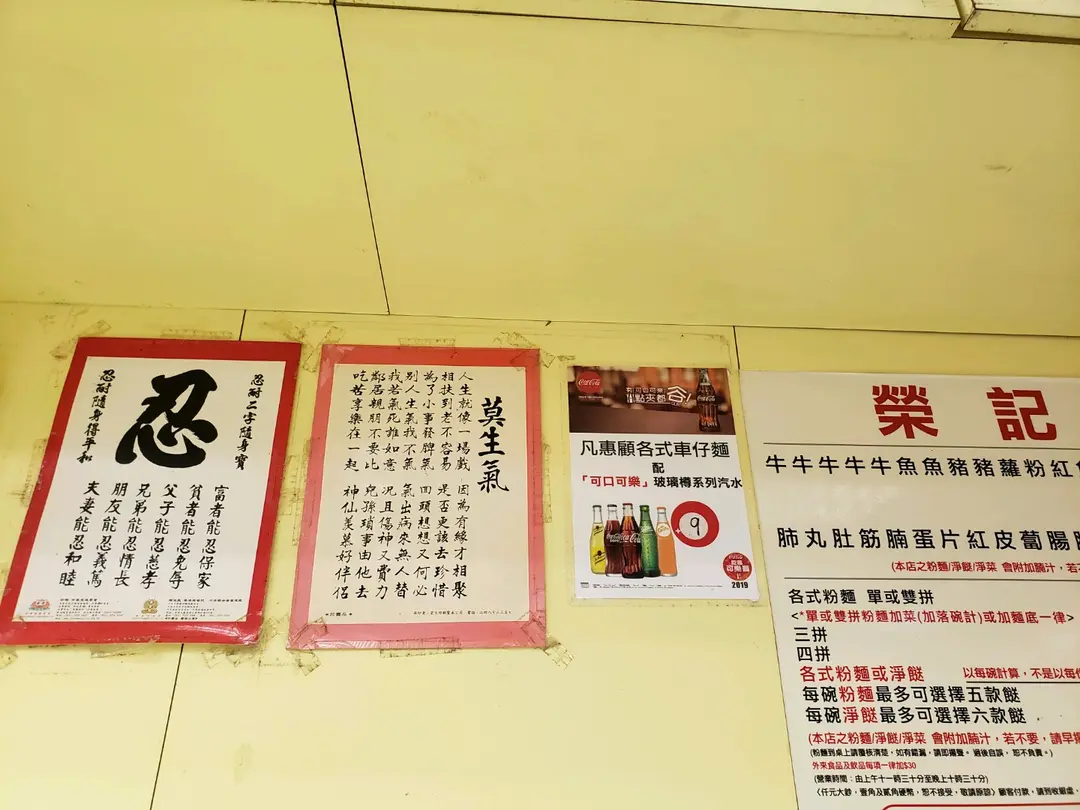 忍
忍耐二字隨身寶
忍耐隨身得平和
富者能忍保家
貧者能忍免辱
父子能忍慈孝
兄弟能忍情長
朋友能忍義篤
夫妻能忍和睦
莫生氣
人生就像一場戲 因為有緣才相聚
相扶到老不容易 是否更該去珍惜
為了小事發脾氣 回頭想想又何必
別人生氣我不氣 氣出病來無人替
我若氣死誰如意 況且傷神又費力
鄰居親朋不要比 兒孫瑣事由他去
吃苦享樂在一起 神仙羨慕好伴侶
Coca-Cola
凡惠顧各式車仔麵
配
「可口可樂」玻璃樽系列汽水
9
2019
榮記
牛牛牛牛牛魚魚豬豬蘿粉紅
肺丸肚筋腩蛋片紅皮蔔腸
(本店之粉麵/淨餸/淨菜 會附加腩汁,若不
各式粉麵 單或雙拼
<*單或雙拼粉麵加菜(加落碗計)或加麵底一律>
三拼
四拼
各式粉麵或淨餸 以每碗計算,不是以每
每碗粉麵最多可選擇五款餸
每碗淨餸最多可選擇六款餸
(本店之粉麵/淨餸/淨菜 會附加腩汁,若不要,請早
(粉麵到桌上請覆核清楚,如有錯漏,請即攝聲。過後自誤,恕不負責。)
外來食品及飲品每項一律加$30
(營業時間:由上午十一時三十分至晚上十時三十分)
(仟元大鈔,壹角及貳角硬幣,恕不接受,敬請原諒) 顧客付款,請到收銀處